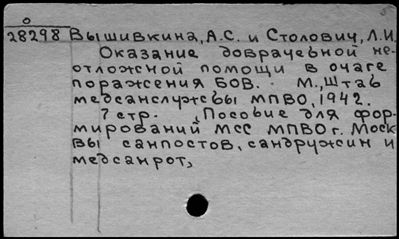 28298 Вышивкина, А.С. и Столович, Л.И.
Оказание доврачебной не-
отложной помощи в очаге
поражения БОВ. М., Штаб
медсанслужбы МПВО, 1942.
7 стр. „Пособие для фор-
мирований МСС МПВО г. Моск-
вы санпостов, сандружин и
медсанрот,